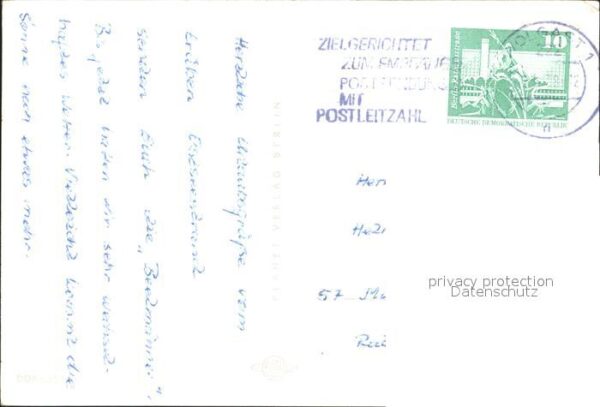 Herzliche Urlaubsgrüße vom
trüben Ostseestrand
senden Euch die „Beedmänner“.
Bis jetzt hatten wir sehr wechsel-
haftes Wetter. Vielleicht kommt die
Sonne noch etwas mehr.
PLANET VERLAG BERLIN
ZIELGERICHTET
ZUM EMPFANG
POSTSENDUNG
MIT
POSTLEITZAHL
WOLGAST 1
10
DEUTSCHE DEMOKRATISCHE REPUBLIK
Herr
57
privacy protection
Datenschutz